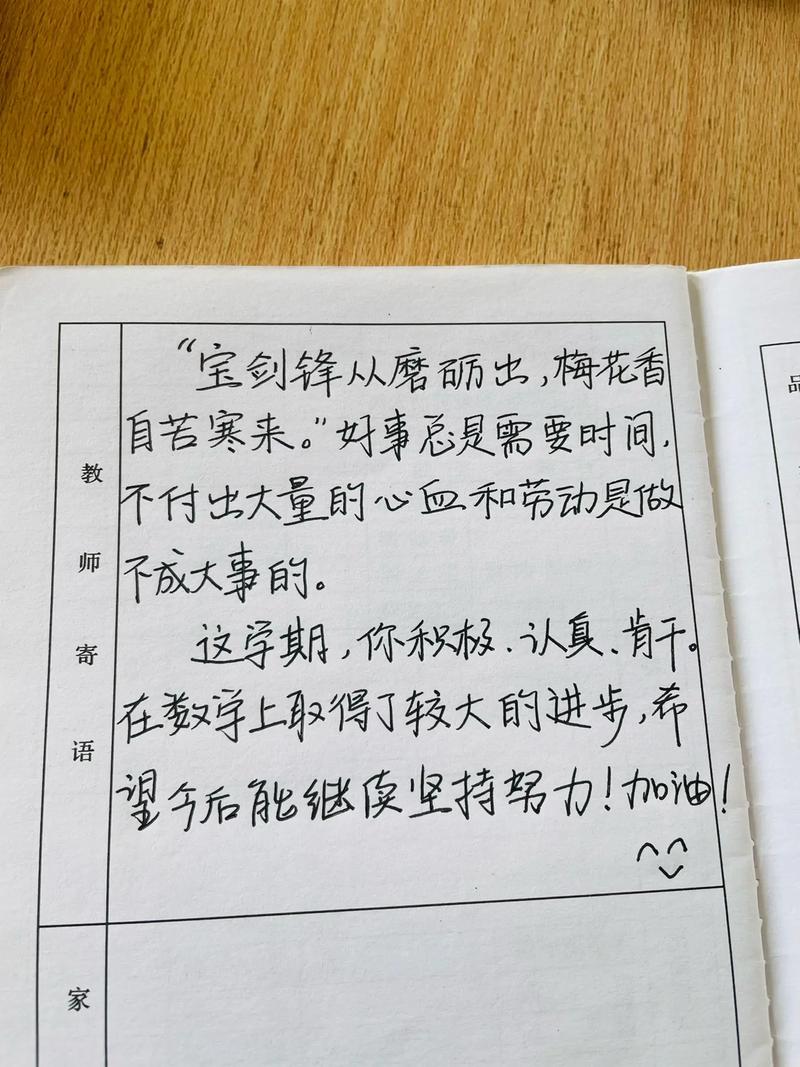 教师寄语
“宝剑锋从磨砺出，梅花香
自苦寒来。”好事总是需要时间，
不付出大量的心血和劳动是做
不成大事的。
这学期，你积极、认真、肯干。
在数学上取得了较大的进步，希
望今后能继续坚持努力！加油！
家
品